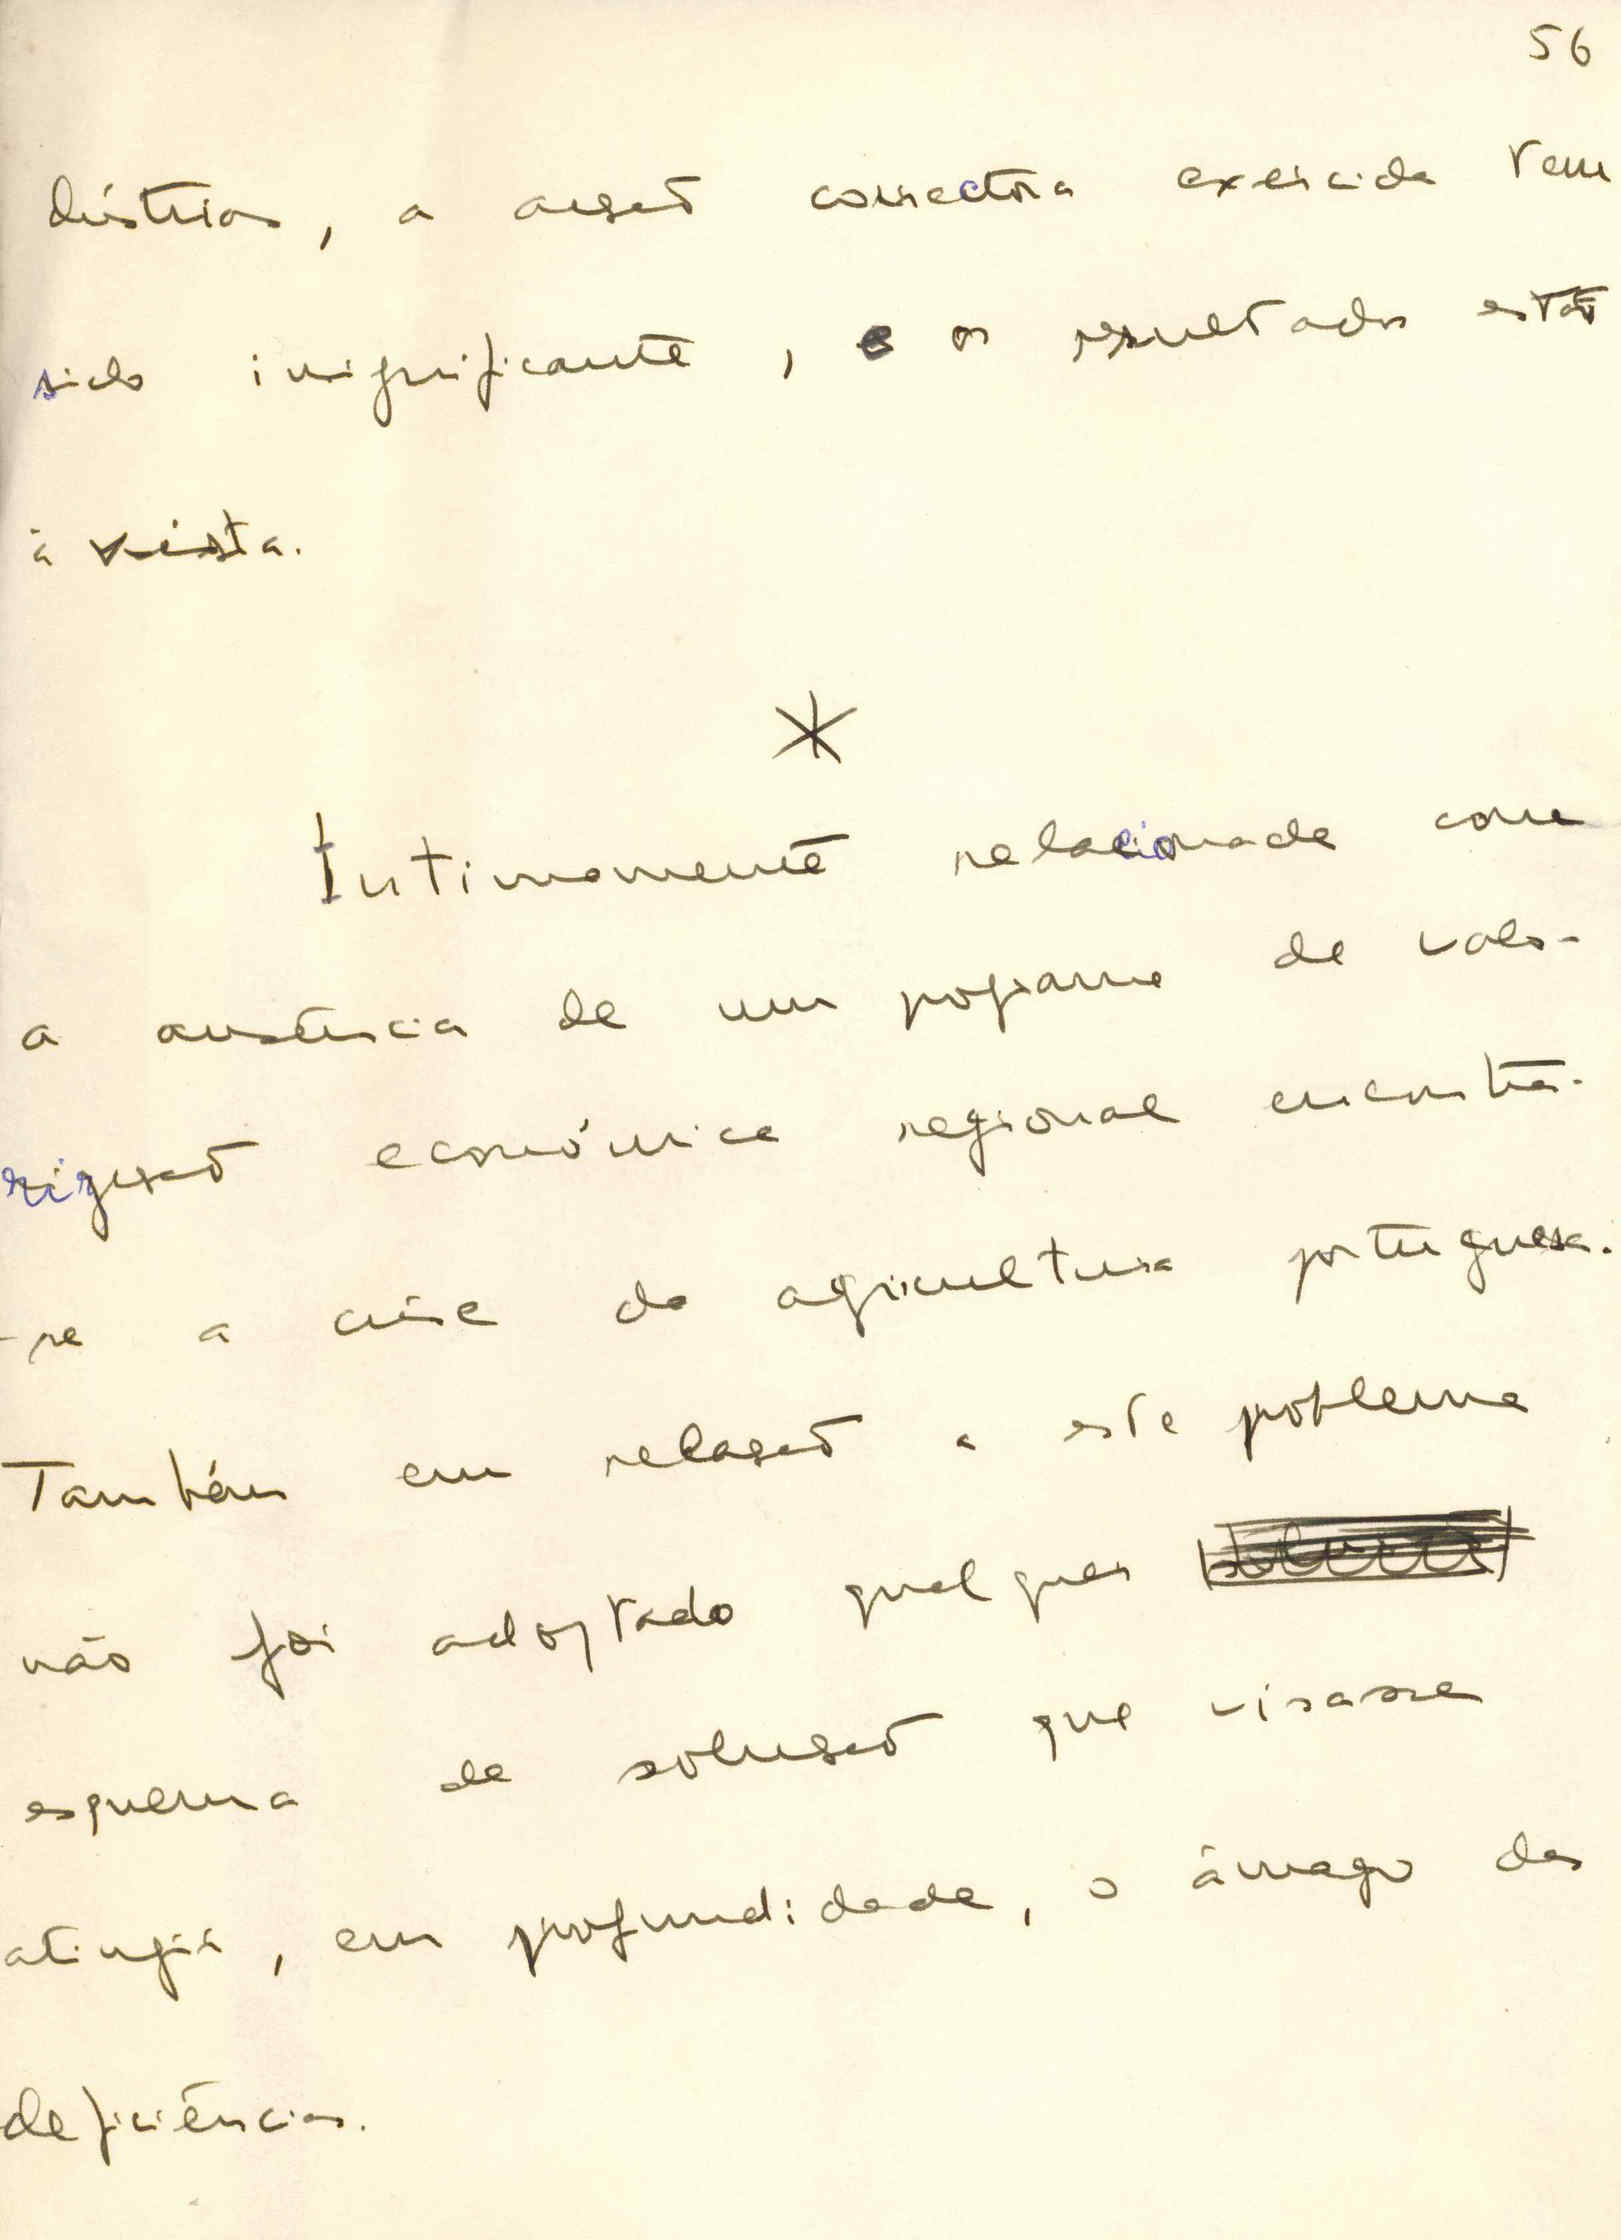 56
dústrias, a acção correctora exercida tem
sido insignificante, e os resultados estão
à vista.
*
Intimamente relacionada com
a ausência de um programa de valo-
rização económica regional encontra-
-se a crise da agricultura portuguesa.
Também em relação a este problema
não foi adoptado qualquer
esquema de solução que visasse
atingir, em profundidade, o âmago das
deficiências.